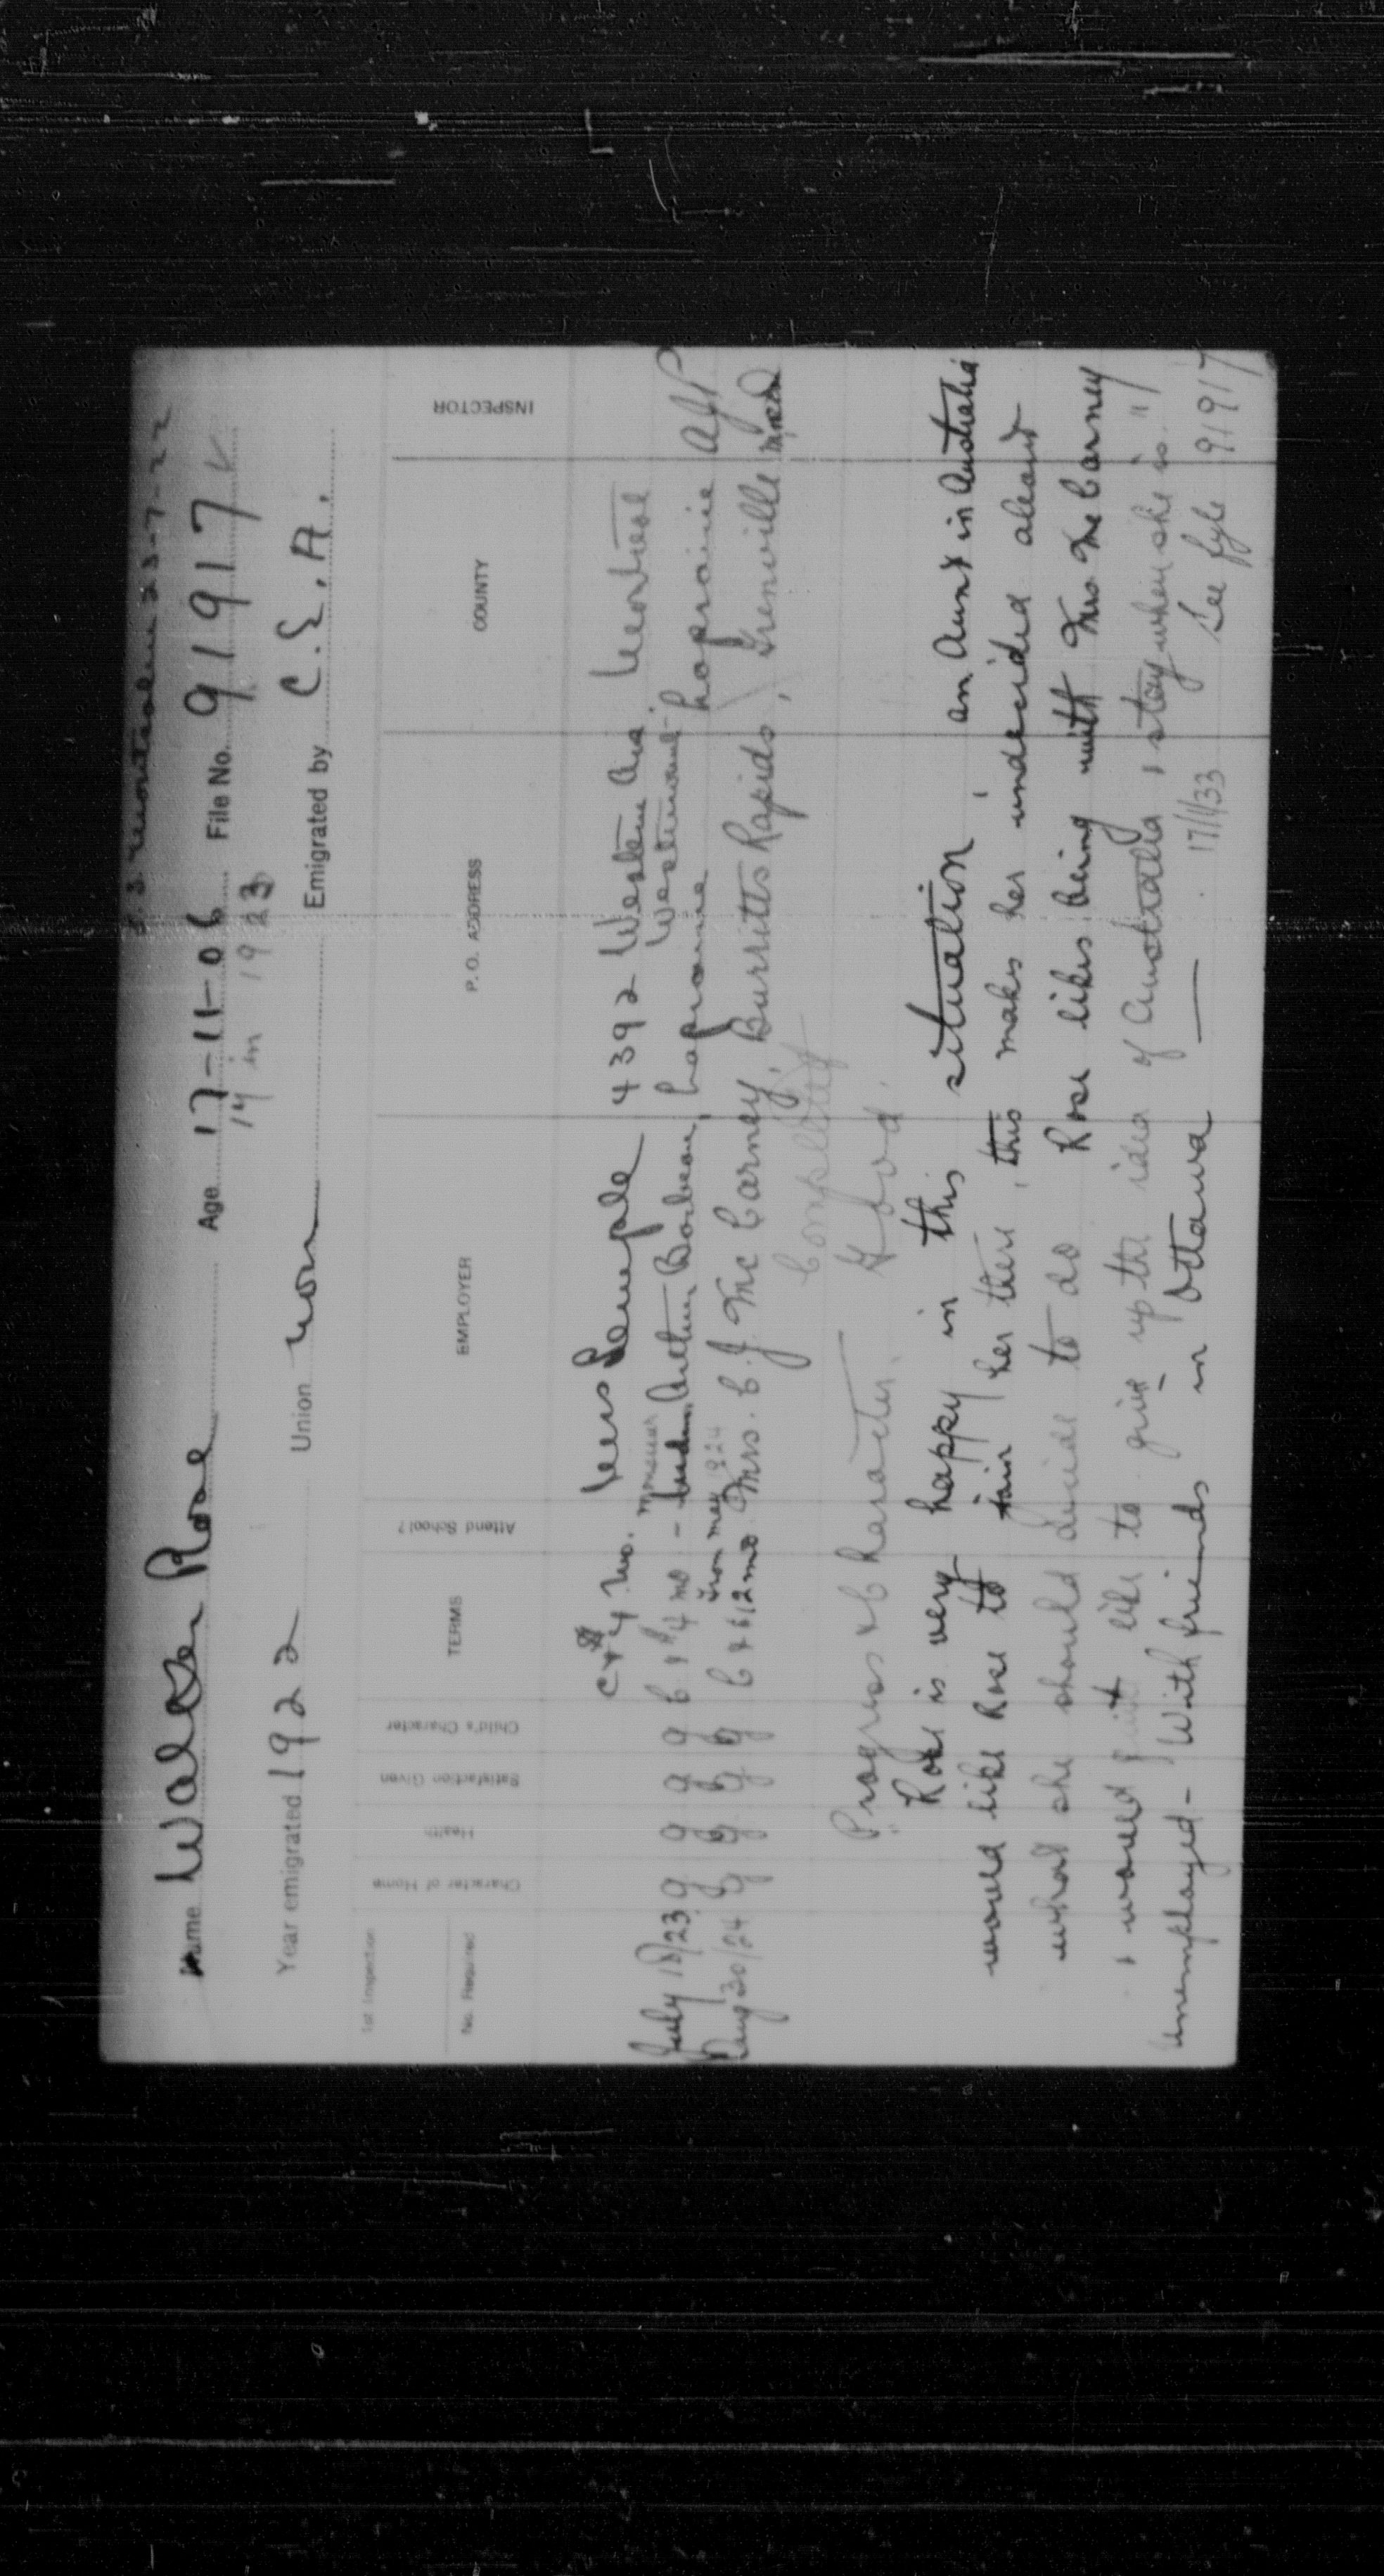 S.S. Montcalm 23-7-22
Name Wales Rose Age 17-11-06 File No. 91917
17 in 1923
Year emigrated 1922 Union Emigrated by C.E.A.
1st Inspection
No. Required Character of Home Health Satisfaction Given Child's Character TERMS Attend School? EMPLOYER P. O. ADDRESS COUNTY INSPECTOR
4 mo. 4392 Western Ave. Montreal
Westmount.
July 18/23 g g g g 4 mo - Arthur Laprairie Laprairie AJP
from May 1924
Aug 30/24 g g g g 12 mo. Mrs. C. J. McCarney, Burritts Rapids, Grenville
Completely
Progress & Character. Good.
Rose is very happy in this situation, an Aunt in Australia
would like Rose to join her there, this makes her undecided about
what she should decide to do. Rose likes being with Mrs. McCarney
& would like to give up the idea of Australia & stay when she is."
Unemployed - With friends in Ottawa — 17/1/33 See fyle 91917